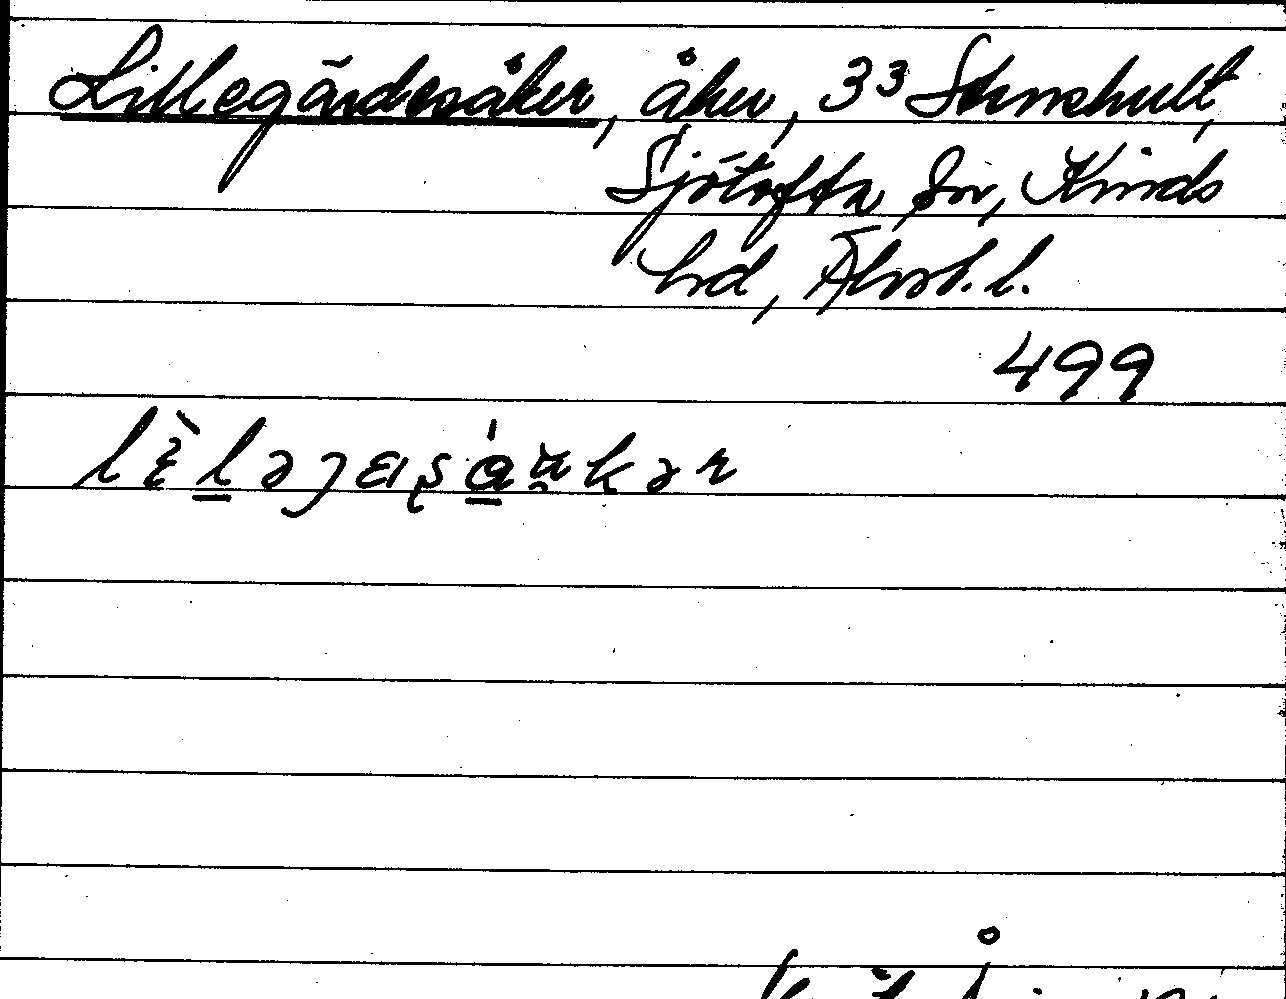 Lillegärdesåker, åker, 3³ Stenshult,
Sjötofta sn, Kinds
hd, Älvsb. l.
499
lὲləȷɛıʂáu̯kər